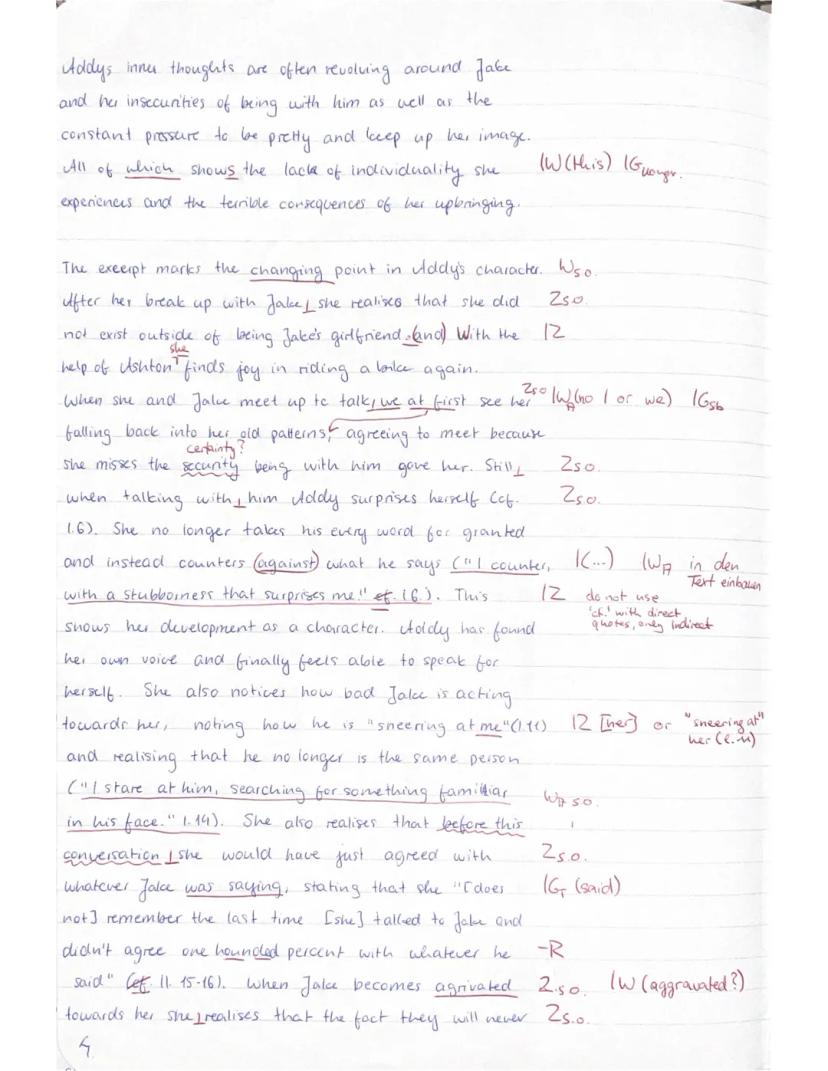 Addys inner thoughts are often revolving around Jake
and her insecurities of being with him as well as the
constant pressure to be pretty and keep up her image.
All of which shows the lack of individuality she |W(this) |G
experiences and the terrible consequences of her upbringing.
The excerpt marks the changing point in Addy's character. Wso.
After her break up with Jake, she realises that she did Zso.
not exist outside of being Jake's girlfriend. (and) With the |Z
she
help of Ashton finds joy in riding a bike again.
When she and Jake meet up to talk, we at first see her Zso |WA(no I or we) |GSb
falling back into her old patterns, agreeing to meet because
certainty?
she misses the security being with him gave her. Still, Zso.
when talking with, him Addy surprises herself (cf. Zs.o.
l.6). She no longer takes his every word for granted
and instead counters (against) what he says ("I counter, |(...) |WA in den Text einbauen
with a stubborness that surprises me!" cf. l6.). This |Z do not use 'cf.' with direct quotes, only indirect
shows her development as a character. Addy has found
her own voice and finally feels able to speak for
herself. She also notices how bad Jake is acting
towards her, noting how he is "sneering at me"(l.11) |Z [her] or "sneering at" her (l.11)
and realising that he no longer is the same person
("I stare at him, searching for something familiar WA so.
in his face." l.14). She also realises that before this
conversation, she would have just agreed with Zs.o.
whatever Jake was saying, stating that she "[does |GT (said)
not] remember the last time [she] talked to Jake and
didn't agree one hounded percent with whatever he -R
said" (cf. ll. 15-16). When Jake becomes agrivated Z.so. |W (aggravated?)
towards her she, realises that the fact they will never Zs.o.
4